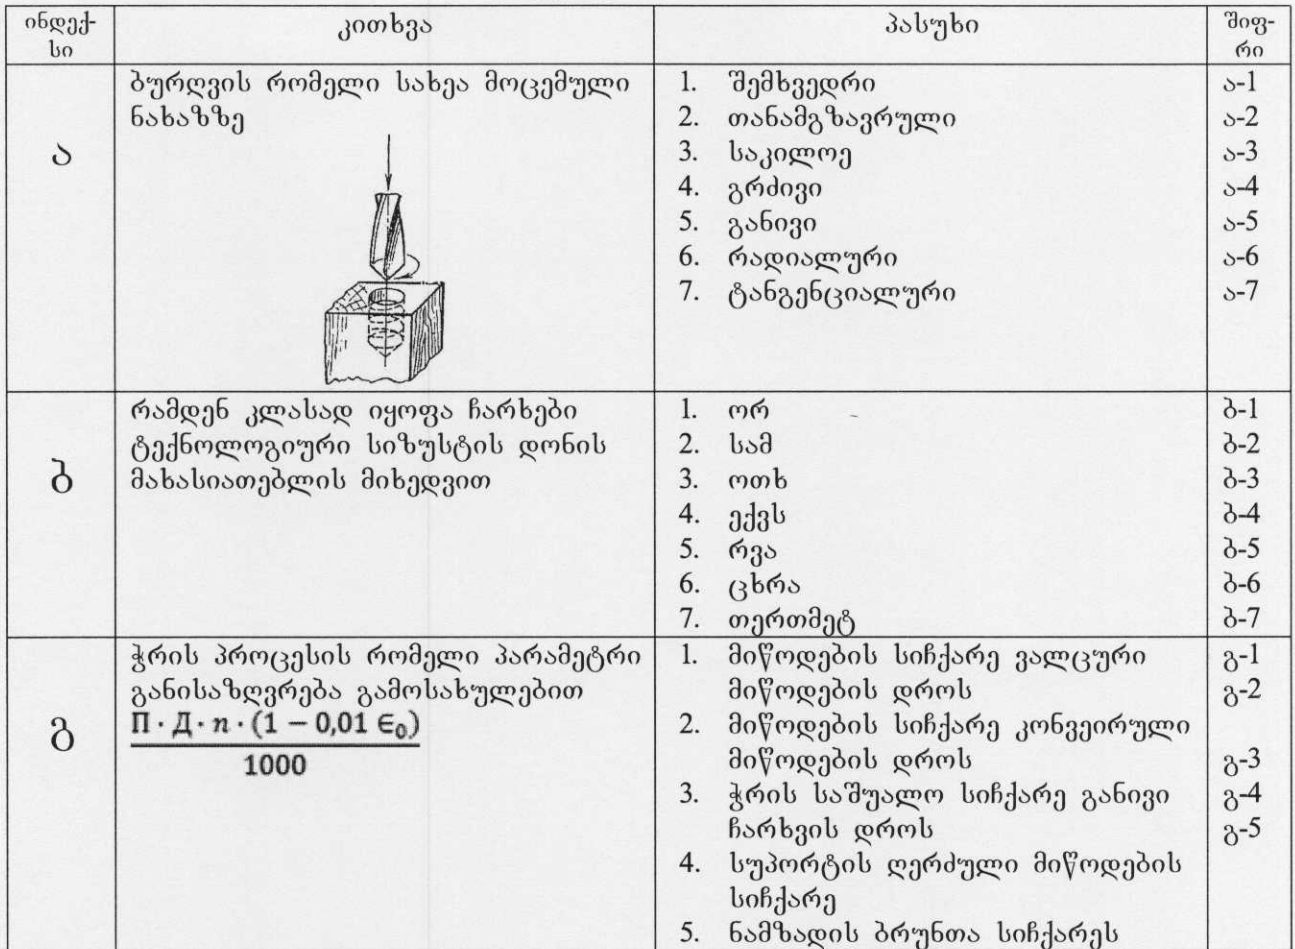 ინდექ-
სი
კითხვა
პასუხი
შიფ-
რი
ა
ბურღვის რომელი სახეა მოცემული
ნახაზზე
1. შემხვედრი
2. თანამგზავრული
3. საკილოე
4. გრძივი
5. განივი
6. რადიალური
7. ტანგენციალური
ა-1
ა-2
ა-3
ა-4
ა-5
ა-6
ა-7
ბ
რამდენ კლასად იყოფა ჩარხები
ტექნოლოგიური სიზუსტის დონის
მახასიათებლის მიხედვით
1. ორ
2. სამ
3. ოთხ
4. ექვს
5. რვა
6. ცხრა
7. თერთმეტ
ბ-1
ბ-2
ბ-3
ბ-4
ბ-5
ბ-6
ბ-7
გ
ჭრის პროცესის რომელი პარამეტრი
განისაზღვრება გამოსახულებით
П · Д · n · (1 − 0,01 ∈₀)
1000
1. მიწოდების სიჩქარე ვალცური
მიწოდების დროს
2. მიწოდების სიჩქარე კონვეირული
მიწოდების დროს
3. ჭრის საშუალო სიჩქარე განივი
ჩარხვის დროს
4. სუპორტის ღერძული მიწოდების
სიჩქარე
5. ნამზადის ბრუნთა სიჩქარეს
გ-1
გ-2
გ-3
გ-4
გ-5